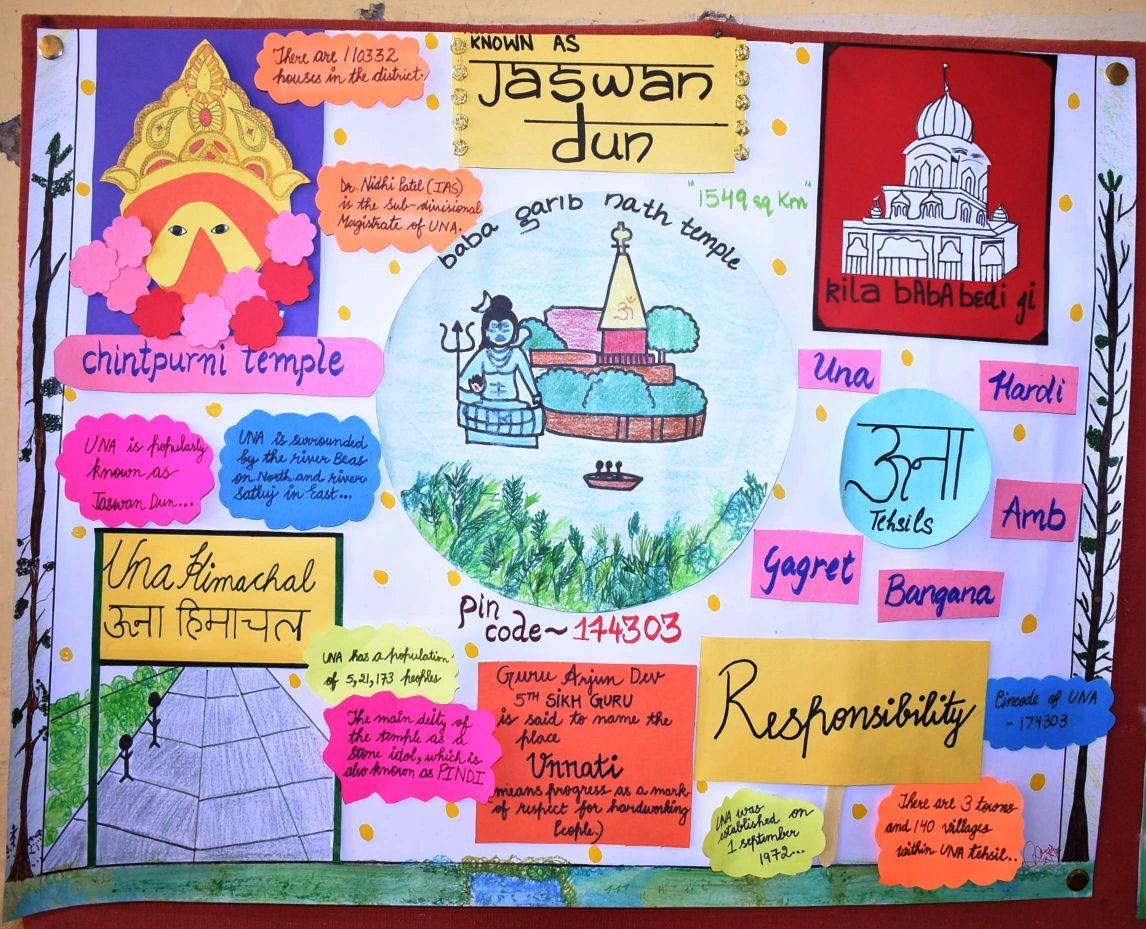 KNOWN AS
Jaswan
dun
There are 110332
houses in the district.
Dr. Nidhi Patel (IAS)
is the Sub-divisional
Magistrate of UNA.
"1549 sq Km"
baba garib nath temple
ॐ
kila bAbA bedi gi
chintpurni temple
UNA is popularly
known as
Jaswan Dun...
UNA is surrounded
by the river Beas
on North and river
Satluj in East...
Una
Hardi
ऊना
Tehsils
Amb
Gagret
Bangana
Una Himachal
ऊना हिमाचल
Pin
code~174303
UNA has a population
of 5,21,173 peoples
The main deity of
the temple as a
Stone idol, which is
also known as PINDI
Guru Arjun Dev
5TH SIKH GURU
is said to name the
place
Unnati
means progress as a mark
of respict for hardworking
People.)
Responsibility
Pincode of UNA
- 174303
UNA was
established on
1 september
1972...
There are 3 towns
and 140 villages
within UNA tehsil..